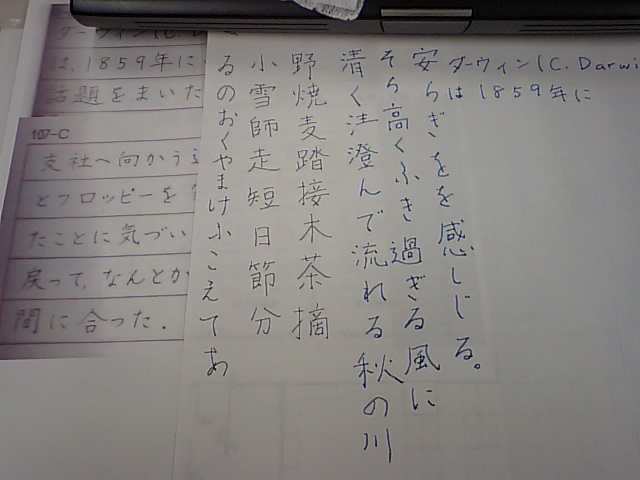 ダーウィン(C. Darwi
は1859年に
安らぎをを感しじる。
そら高くふき過ぎる風に
清く注澄んで流れる秋の川
野焼麦踏接木茶摘
小雪師走短日節分
るのおくやまけふこえてあ
ダーウィン(C.
は,1859年に
話題をまいた
107-C
支社へ向かう
とフロッピーを
たことに気づい
戻って,なんとか
間に合った.